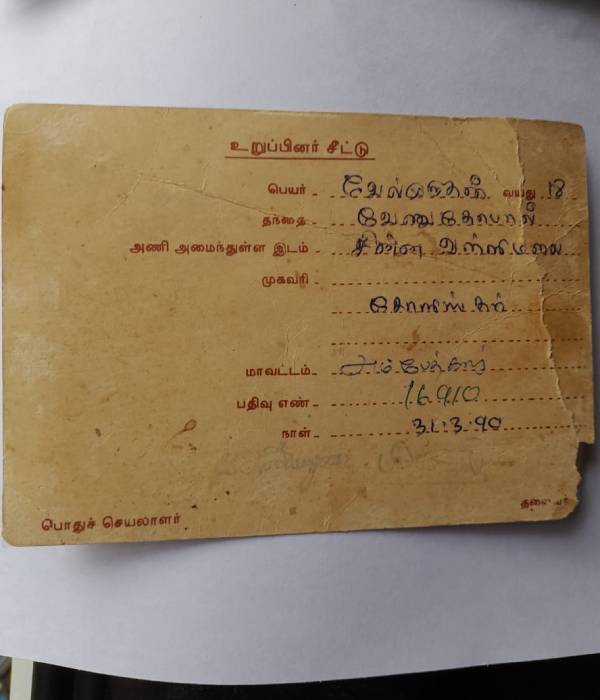 உறுப்பினர் சீட்டு
பெயர் - வேல்முருகன் வயது 18
தந்தை - வேணுகோபால்
அணி அமைந்துள்ள இடம் - சின்ன வள்ளிமலை
முகவரி -
மாவட்டம் - அம்பேத்கார்
பதிவு எண் - 16910
நாள் - 31.3.90
பொதுச் செயலாளர்